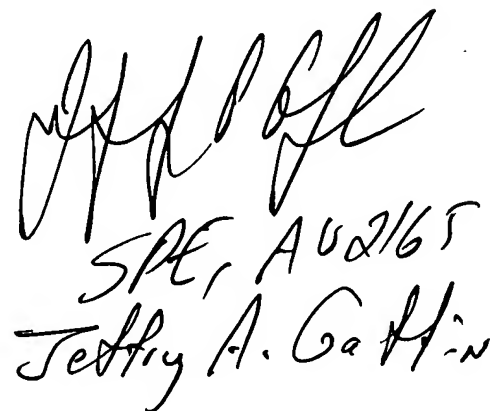 SPE, AU2165
Jeffry A. Gaffin